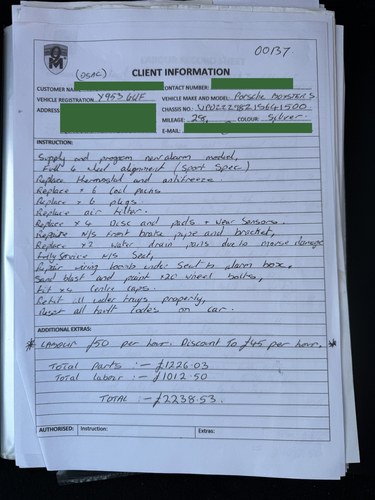 00137
(OSAC)
CLIENT INFORMATION
CUSTOMER NAME
CONTACT NUMBER:
VEHICLE REGISTRATION X953 GUF
VEHICLE MAKE AND MODEL: Porsche BOXSTER S
ADDRESS
CHASSIS NO.:
MILEAGE: COLOUR Silver
E-MAIL:
INSTRUCTION:
Supply and program new alarm model,
Full 4 wheel alignment (Sport Spec)
Replace thermostat and antifreeze
Replace × 6 Coil packs
Replace × 6 plugs
Replace air filter.
Replace × 4 Disc and pads + wear Sensors.
Replace N/S front brake pipe and bracket,
Replace ×2 Water drain due to damage
Fully Service N/S Seat,
Repair wiring under Seat to alarm box,
Sand blast and paint ×20 wheel bolts,
Fit ×4 Centre Caps.
Refit all under trays properly,
Reset all fault Codes on car.
ADDITIONAL EXTRAS:
* LABOUR £50 per hour. Discount To £45 per hour. *
Total Parts :- £1226.03
Total labour :- £1012.50
TOTAL :- £2238.53.
AUTHORISED: Instruction: Extras: